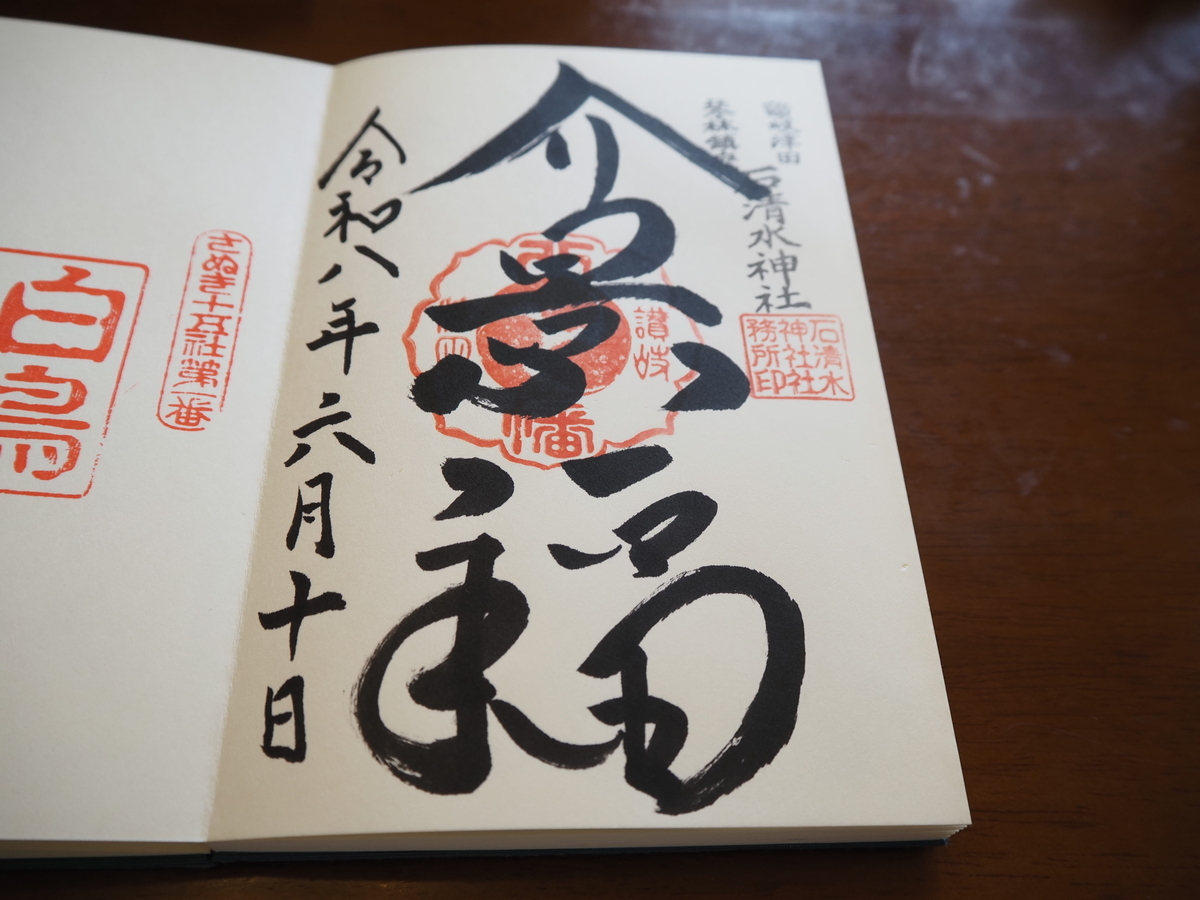 讃岐津田
琴林鎮座
石清水神社
石清水
神社社
務所印
福
讃岐
幡
令和八年六月十日
さぬき十五社第一番
白鳥